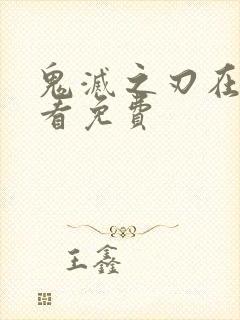 鬼滅之刃在
看免費
王鑫